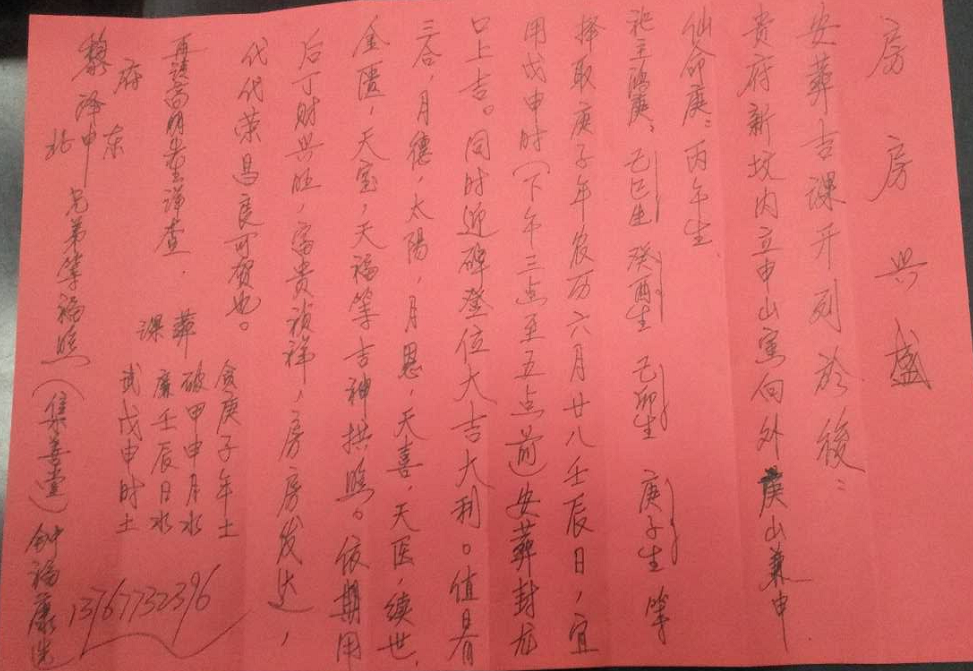 房房兴盛
安葬吉课开列於後：
贵府新坟内立申山寅向外庚山兼申
仙命庚：丙午生
祀主鸿庚：己巳生 癸酉生 己卯生 庚子生 等
择取庚子年农历六月廿八壬辰日，宜
用戊申时（下午三点至五点前）安葬封龙
口上吉。同时迎碑登位大吉大利。值得
三合，月德，太阳，月恩，天喜，天医，续世，
金匮，天宝，天福等吉神拱照。依期用
后丁财兴旺，富贵祯祥，房房发达，
代代荣昌良可贺也。
再请高明先生详查，
葬课
贪庚子年土
破甲申月水
廉壬辰日水
武戊申时土
府东
黎泽申 北 兄弟等福照（集善堂）钟福康选
13767732396